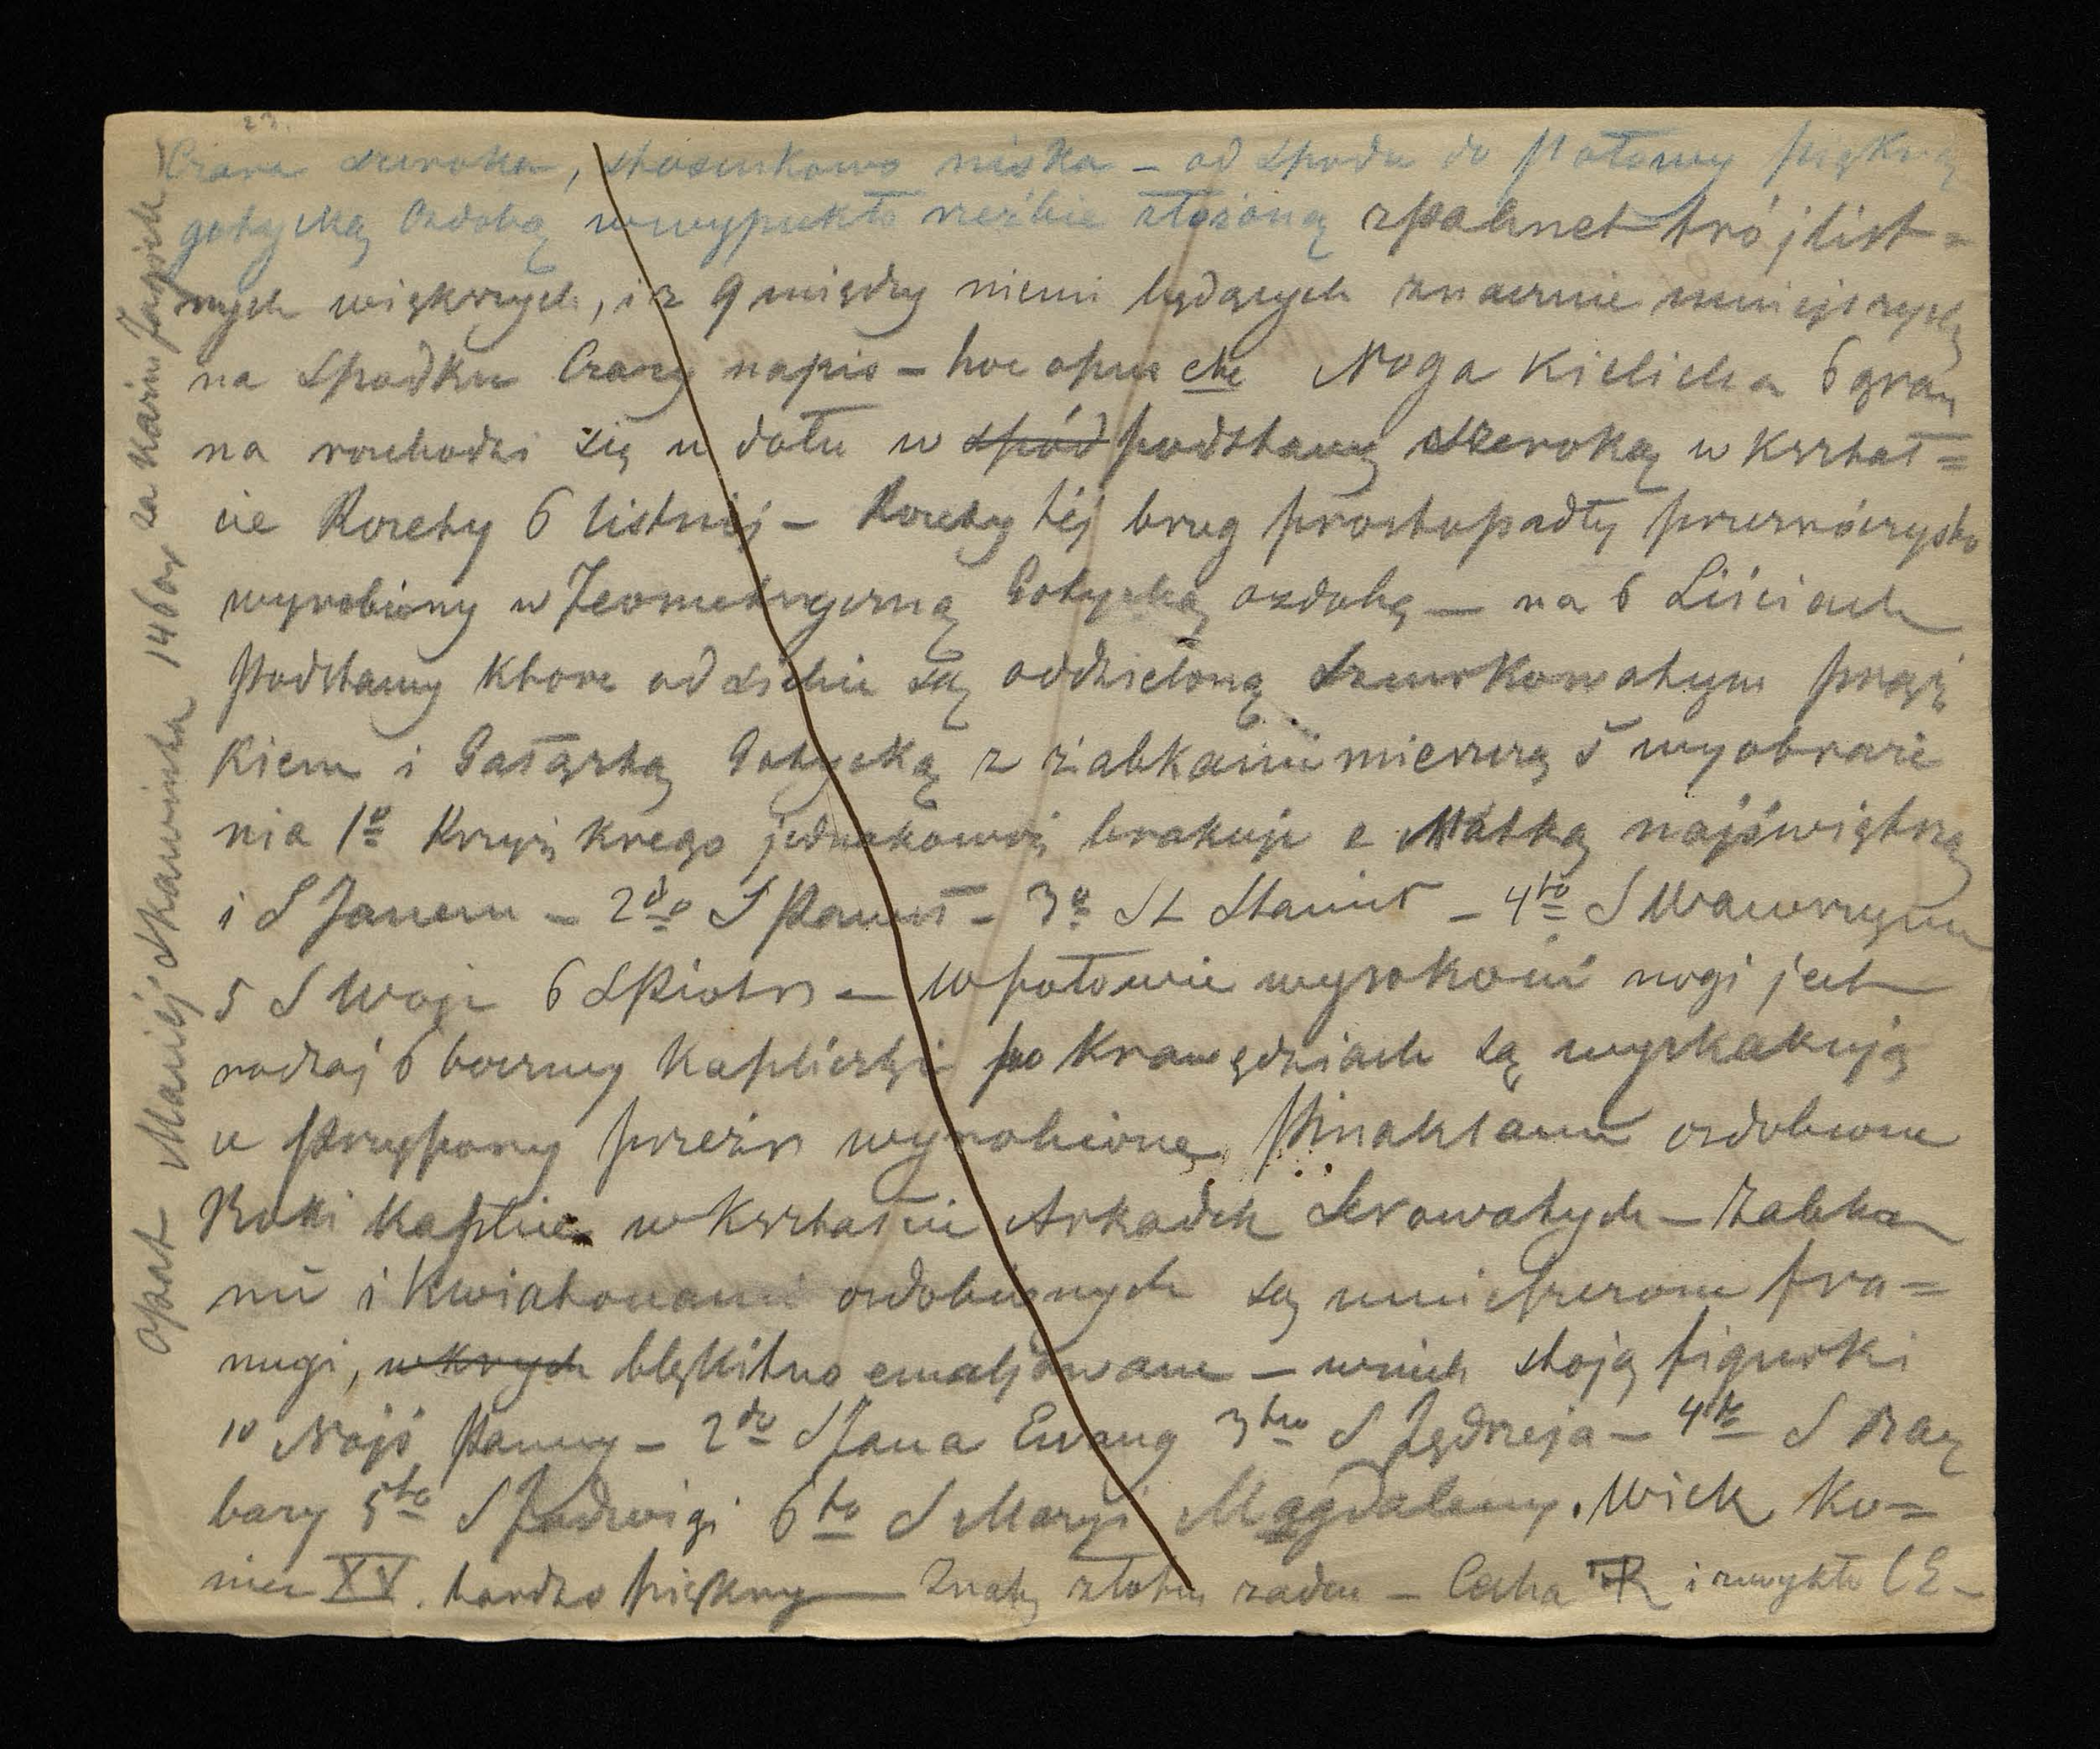 23.
Czara szeroka, stosunkowo niska – od spodu do połowy piękną
gotycką ozdobą wwypukło rzeźbie złożoną zpalmet trójlist=
nych większych, i z 9 między niemi będących znacznie mniejszych
na spodku Czary napis – hoc opus etc Noga Kielicha 6 gran
na rozchodzi się u dołu w spód podstawę szeroką w kształ=
cie Rozety 6 listnéj – Rozety téj brzeg prostopadły przezroczysto
wyrobiony w Jeometryczną Gotycką ozdobę – na 6 Liściach
Podstawy które od siebie są oddzieloną sznurkowatym pręż
kiem i Gałązką Gotycką z żabkami mieszczą 5 wyobraże
nia 1o Krzyż krego jednakowoż brakuje z Matką najświętszą
i S Janem – 2do S Paweł – 3o St Stanisł – 4to S Wawrzyniec
5 S Wojc 6 S Piotr – w połowie wysokości nogi jest
rodzaj 6 bocznej Kapliczki po Krawędziach są wyskakują
ce Przypory przeźr wyrobione, Pinaklami ozdobione
Boki Kaplic w Kształcie Arkadek – Żabka
mi i Kwiatonami ozdobionych są umieszczone fra=
mugi, wkrych błękitno emaljowane – wnich stoją figurki
1o Najś Panny – 2do S Jana Ewang 3tio S Jędrzeja – 4to S Bar
bary 5to S Jadwigi 6to S Maryi Magdaleny. Wiek Ko=
niec XV. bardzo piękny – Znaku złotn żadne – Cecha R i zwykła CE –
Opat Maciéj Skawinka 1460r za Kazim Jagiell